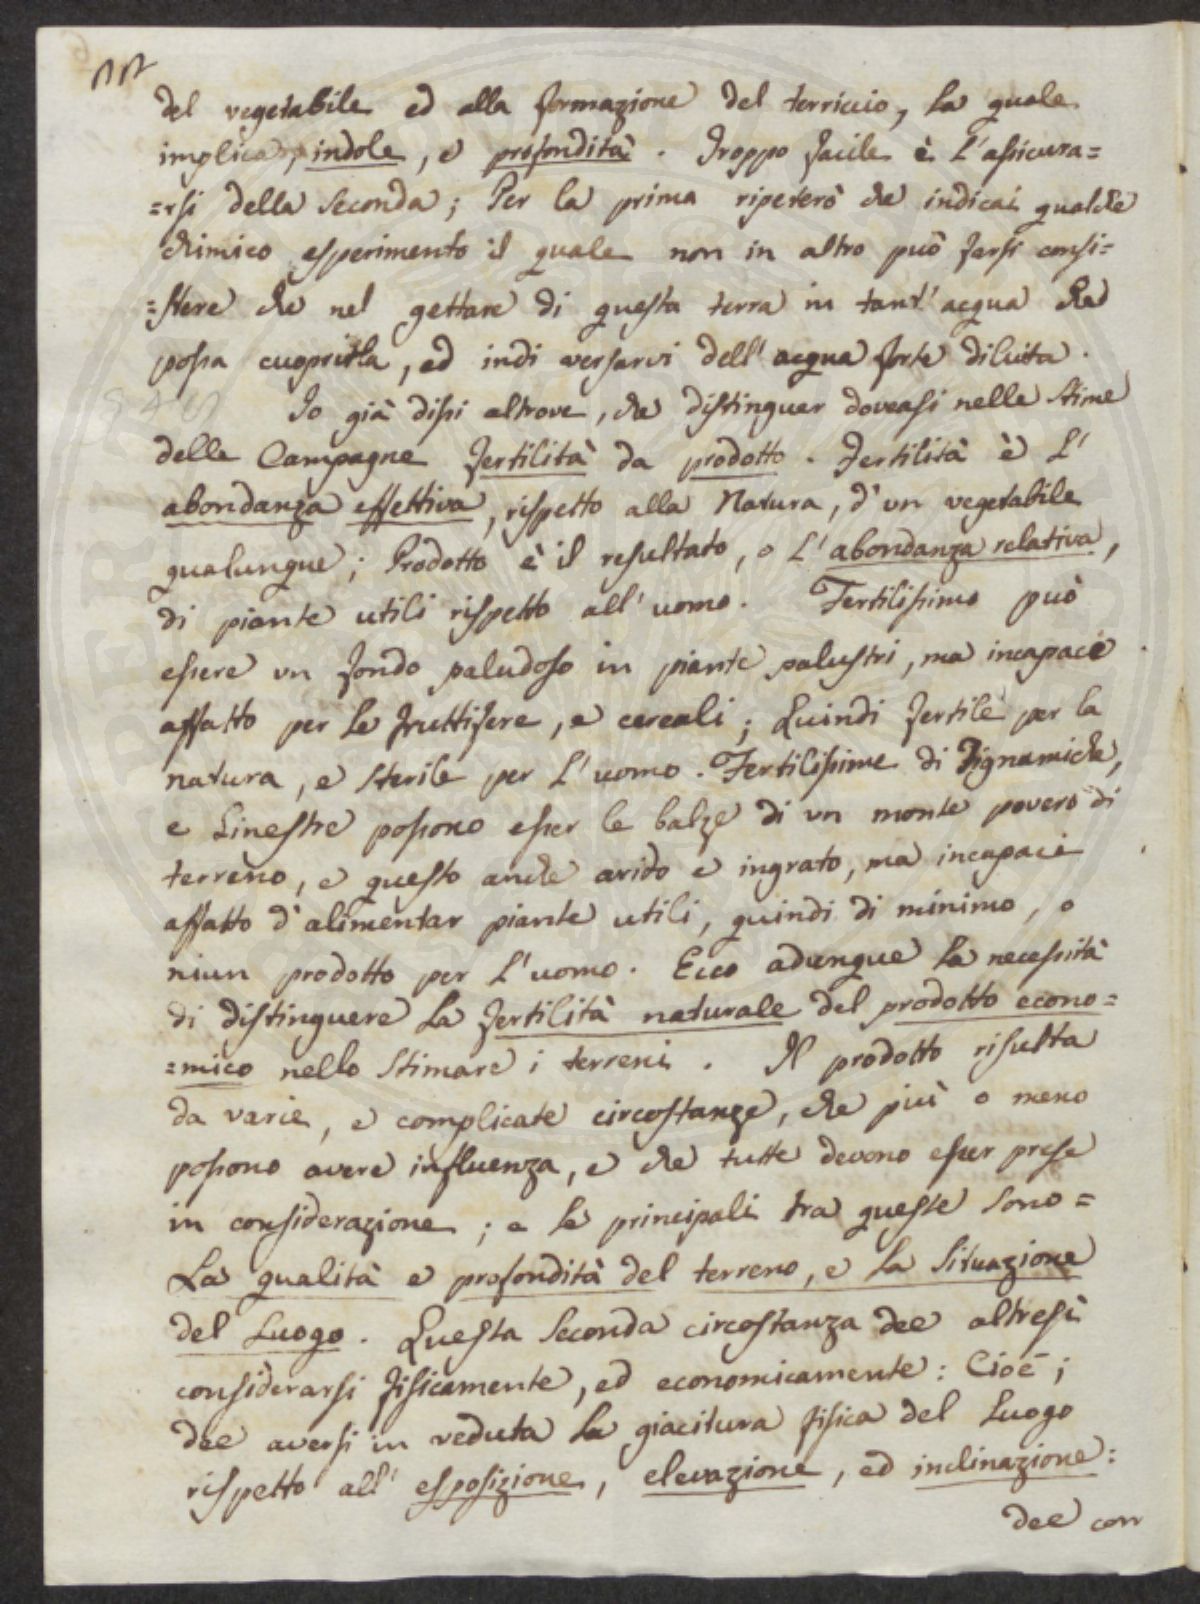 del vegetabile ed alla formazione del terriccio, la quale
implica, indole, e profondità. Troppo facile è l'assicura=
=rsi della seconda; Per la prima ripeterò che indicai qualche
chimico esperimento il quale non in altro può farsi consi=
=stere che nel gettare di questa terra in tant'acqua che
possa cuoprirla, ed indi versarvi dell'acqua forte diluita.
Io già dissi altrove, che distinguer doveasi nelle Stime
delle Campagne fertilità da prodotto. Fertilità è l'
abondanza effettiva, rispetto alla Natura, d'un vegetabile
qualunque; Prodotto è il resultato, o l'abondanza relativa,
di piante utili rispetto all'uomo. Fertilissimo può
essere un fondo paludoso in piante palustri, ma incapace
affatto per le fruttifere, e cereali; Quindi fertile per la
natura, e sterile per l'uomo. Fertilissime di Tignamiche,
e Ginestre possono esser le balze di un monte povero di
terreno, e questo anche arido e ingrato, ma incapace
affatto d'alimentar piante utili, quindi di minimo, o
niun prodotto per l'uomo. Ecco adunque la necessità
di distinguere la fertilità naturale del prodotto econo=
=mico nello stimare i terreni. Il prodotto risulta
da varie, e complicate circostanze, che più o meno
possono avere influenza, e che tutte devono esser prese
in considerazione; e le principali tra queste sono=
La qualità e profondità del terreno, e la Situazione
del Luogo. Questa seconda circostanza dee altresì
considerarsi fisicamente, ed economicamente: Cioè;
dee aversi in veduta la giacitura fisica del Luogo
rispetto all'esposizione, elevazione, ed inclinazione:
dee con